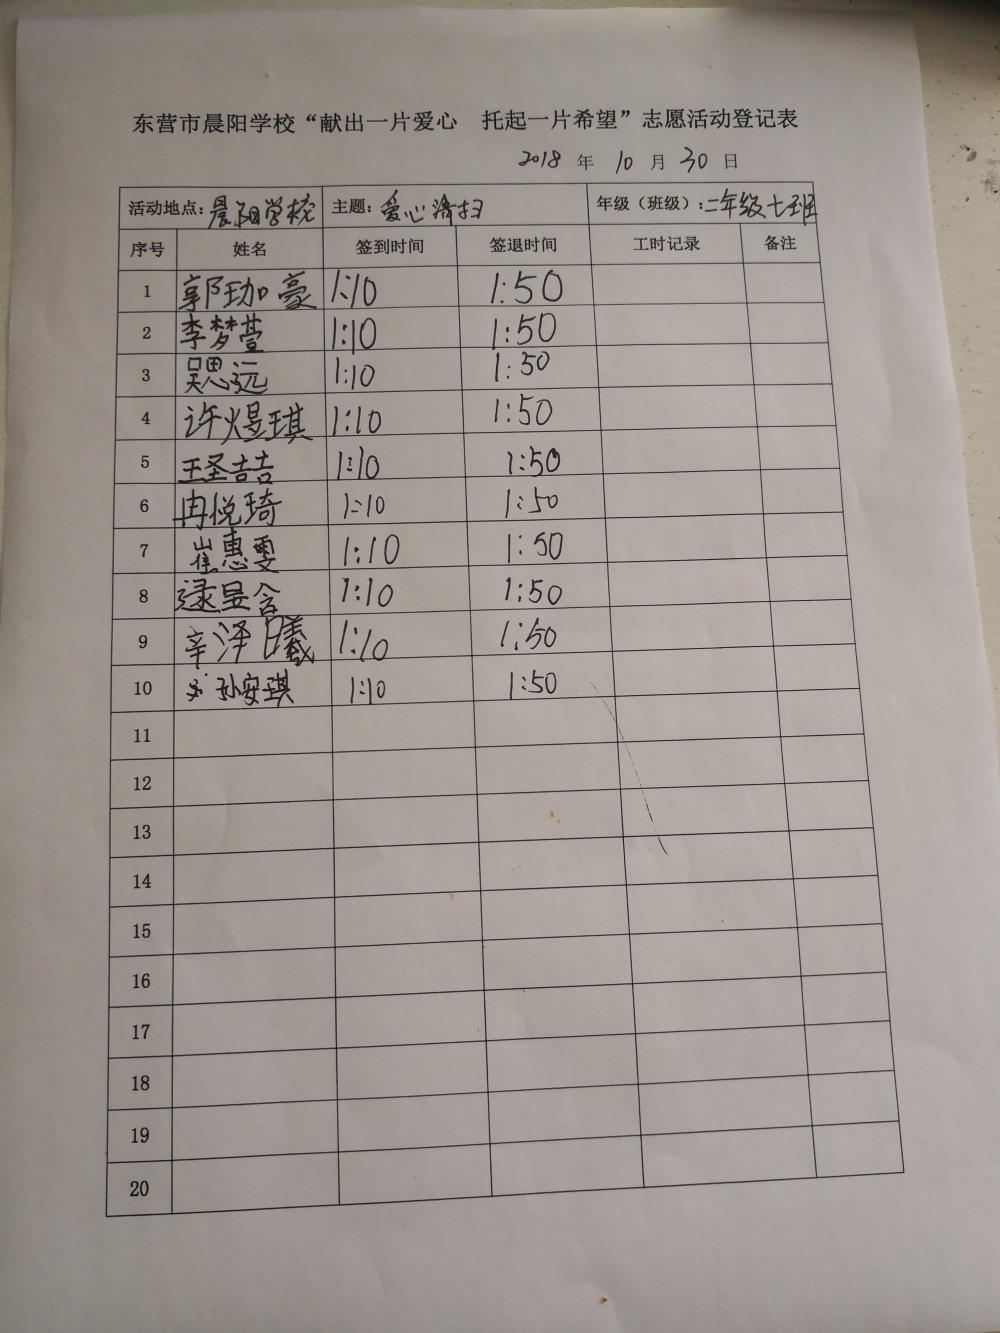 东营市晨阳学校“献出一片爱心 托起一片希望”志愿活动登记表
2018 年 10 月 30 日
活动地点：晨阳学校 主题：爱心清扫 年级（班级）：二年级七班
序号 姓名 签到时间 签退时间 工时记录 备注
1 郭珈豪 1:10 1:50
2 李梦萱 1:10 1:50
3 吴思远 1:10 1:50
4 许煜琪 1:10 1:50
5 王圣喆 1:10 1:50
6 冉悦琦 1:10 1:50
7 崔惠雯 1:10 1:50
8 逯昱含 1:10 1:50
9 辛泽曦 1:10 1:50
10 孙安琪 1:10 1:50
11
12
13
14
15
16
17
18
19
20